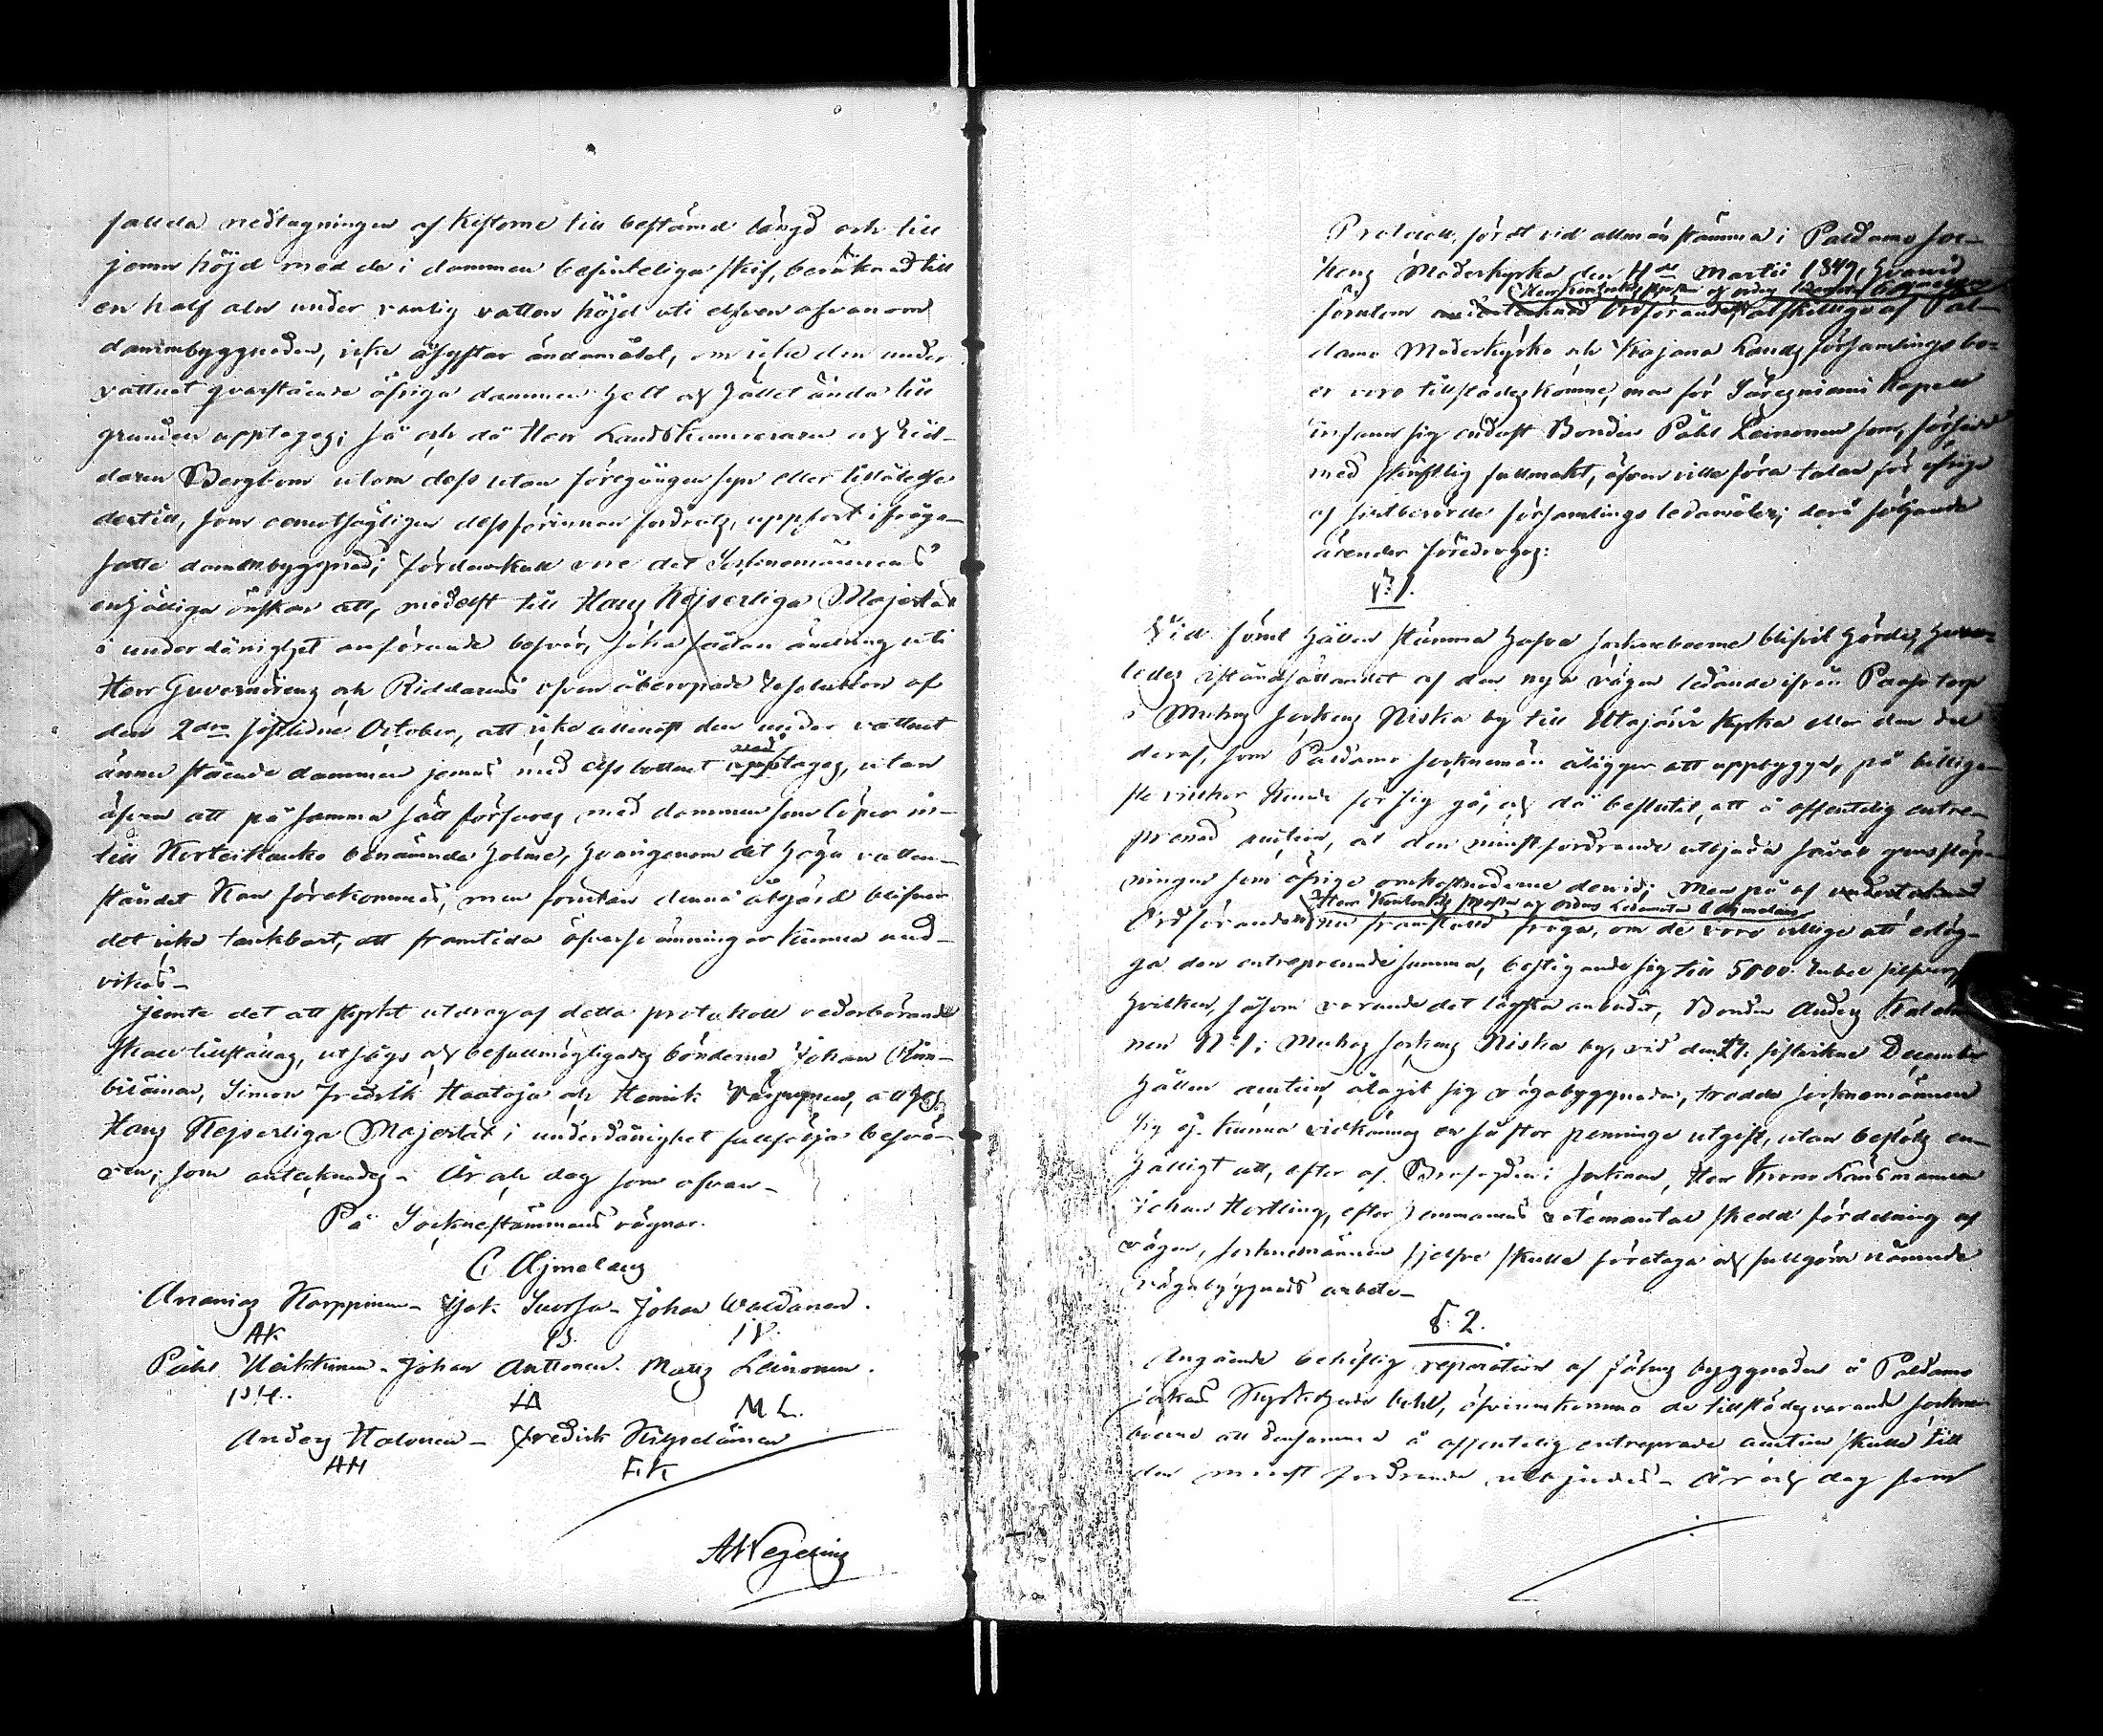 fallda nedtagningen af kistorne till bestämd längd och till
jemn höjd med de i dammen befinteliga skif, beräknad till
en half aln under vanlig vatten höjd uti elfven ofvanom
dammbyggnaden, icke åsyftar ändamålet, om icke den under
vattnet qvarstående öfriga dammen helt och hållet ända till
grunden upptages; så och då Herr Landskamereraren och Rid-
daren Bergbom utom dess utan föregången syn eller tillåtelse
dertill, som oemotsägligen dessförinnan fordrats, uppfört ifråga-
satte dammbyggnad; fördenskull vore det Sockenemännens
enhälliga önskan att, medelst till Hans Kejserliga Majestät
i underdånighet anförande besvär, söka sådan ändring uti
Herr Guvernörens och Riddarens ofvan åberopade Resolution af
den 2dra sistledne October, att icke allenast den under vattnet
ännu stående dammen jemns med elfs bottnet nedtages, utan
äfven att på samma sätt förfares med dammen som löper in-
till Koiteikanko benämnde holme, hvarigenom det höga vatten-
ståndet kan förekommas, men förutan denna åtgärd blifver
det icke tänkbart, att framtida öfversvämningar kunna und-
vikas_
Jemte det att skyndt utdrag af detta protokoll vederbörande
skall tillställas, utsågs och befullmägtigades bönderne Johan
Simon Fredrik Haataja och Henrik att hos
Hans Kejserliga Majestät i underdånighet fullfölja besvä-
ren; som antecknades_ År och dag som ofvan_
På Sockenestämmans vägnar.
C Ajmelaus
Ananias Karppinen_ Isak Juvosa_ Johan Woldanen.
AK IS. IV.
Påhl Heikkinen. Johan Anttonen. Mats Leinonen.
P.H. IA ML.
Anders Halonen_ Fredrik Kilpeläinen
AH F.K.
AWegelius
Protocoll, fördt vid allmän stämma i Paldamo Soc-
kens Moderkyrka den 4de Martii 1849, hvarvid
Herr Contracts Prosten och Ordens Ledamoten Ajmelaeus
förutom undertecknad Ordförande, åtskillige af Pal-
damo Moderkyrko och Kajana Lands församlings bo-
er voro tillstädeskomne, men för Säresniemi Kapell
infann sig endast Bonden Påhl Leinonen som, försedd
med skriftlig fullmakt, äfven ville föra talan för öfrige
af sistberörde församlings ledamöter; derå följande
ärender föredrogs:
§ 1.
Vid sednast hållen stämma hafva sockneboerne blifvit hörde, huru-
ledes iståndsättandet af den nya vägen ledande ifrån Paaso torp
i Muhos Sockens Niska by till Utajärvi Kyrka eller den del
deraf, som Paldamo Sockneman åligger att uppbygga, på billiga-
ste vilkor kunde för sig gå, och då beslutit, att å offentelig entre-
prenad auction, åt den minst fordrande utbjuda såväl
ningen som öfrige omkostnaderne dervid; Men på af undertecknad
Herr Contracts Prosten och Ordens Ledamoten Ajmelaeus
Ordföranden nu framställd fråga, om de voro villige att erläg-
ga den entreprenade summa, bestigande sig till 5000. Rubel silfver,
hvilken, såsom varande det lägsta anbudet, Bonden Anders
nen N:o 1 i Muhos Sockens Niska by, vid den 27. sistvikne December
hållen auction, åtagit sig vägabyggnaden, trodde sockenemännen
sig ej kunna vidkännas en så stor penninge utgift, utan beslöts en-
hälligt att, efter af Befogden i Socknen, Herr Krono Länsmannen
Johan Hortling, efter hemmanens skedd fördelning af
vägen, socknemännen sjelfve skulle företaga och fullgöra nämnde
vägabyggnads arbete_
§. 2.
Angående behöflig reparation af fähus byggnaden å Paldamo
Sockens Kyrkoherde bohl, öfverenskommo de tillstädesvarande sockne-
boerne att densamma å offentelig entreprenade auction skulle till
den minst fordrande utbjudas_ År och dag som